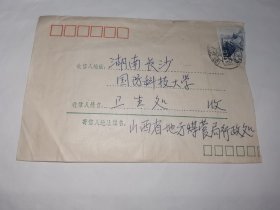 收信人地址： 湖南长沙
国防科技大学
收信人姓名： 卫生处 收
寄信人地址姓名： 山西省地方煤管局行政处